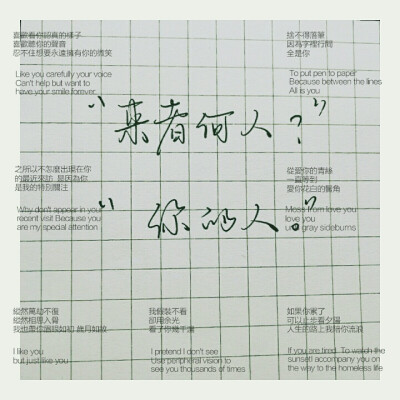 喜歡看你認真的樣子
喜歡聽你的聲音
忍不住想要永遠擁有你的微笑
Like you carefully your voice
Can't help but want to
have your smile forever.
捨不得落筆
因為字裡行間
全是你
To put pen to paper
Because between the lines
All is you
“来者何人？”
之所以不怎麼出現在你
的最近來訪 是因為你
是我的特別關注
Why don't appear in your
recent visit Because you
are my special attention
從愛你的青絲
一直等到
愛你花白的鬢角
Moss from love you
love you
until gray sideburns
“你的人。”
縱然萬劫不復
縱然相思入骨
我也待你眉眼如初 歲月如故
I like you
but just like you
我假裝不看
卻用余光
看了你幾千遍
I pretend I don't see
Use peripheral vision to
see you thousands of times
如果你累了
可以止步看夕陽
人生的路上我陪你流浪
If you are tired. To watch the
sunset I accompany you on
the way to the homeless life